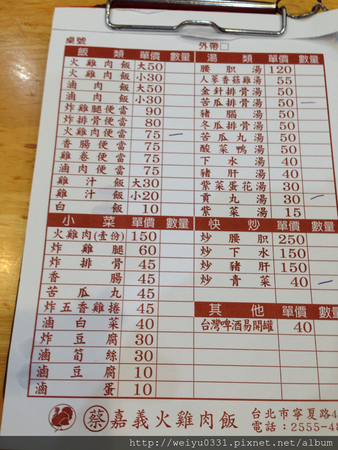 桌號 外帶□
飯類 單價 數量 湯類 單價 數量
火雞肉飯 大50 腰胆湯 120
火雞肉飯 小30 人蔘香菇雞湯 55
滷肉飯 大50 金針排骨湯 55
滷肉飯 小30 苦瓜排骨湯 50
炸雞腿便當 90 豬腦湯 50
炸排骨便當 80 冬瓜排骨湯 50
火雞肉便當 75 苦瓜丸湯 50
香腸便當 75 酸菜鴨湯 50
雞卷便當 75 下水湯 40
滷肉便當 75 豬肝湯 40
雞汁飯 大30 紫菜蛋花湯 30
雞汁飯 小20 貢丸湯 30
白飯 10 紫菜湯 15
小菜 單價 數量 快炒 單價 數量
火雞肉(壹份) 150 炒腰胆 250
炸雞腿 60 炒下水 150
炸排骨 45 炒豬肝 150
香腸 45 炒青菜 40
苦瓜丸 45
炸五香雞捲 45 其他 單價 數量
滷白菜 40 台灣啤酒易開罐 40
炸豆腐 30
滷筍絲 30
滷豆腐 10
滷蛋 10
蔡 嘉義火雞肉飯 台北市寧夏路4
電話：2555-48
http://weiyu0331.pixnet.net/album